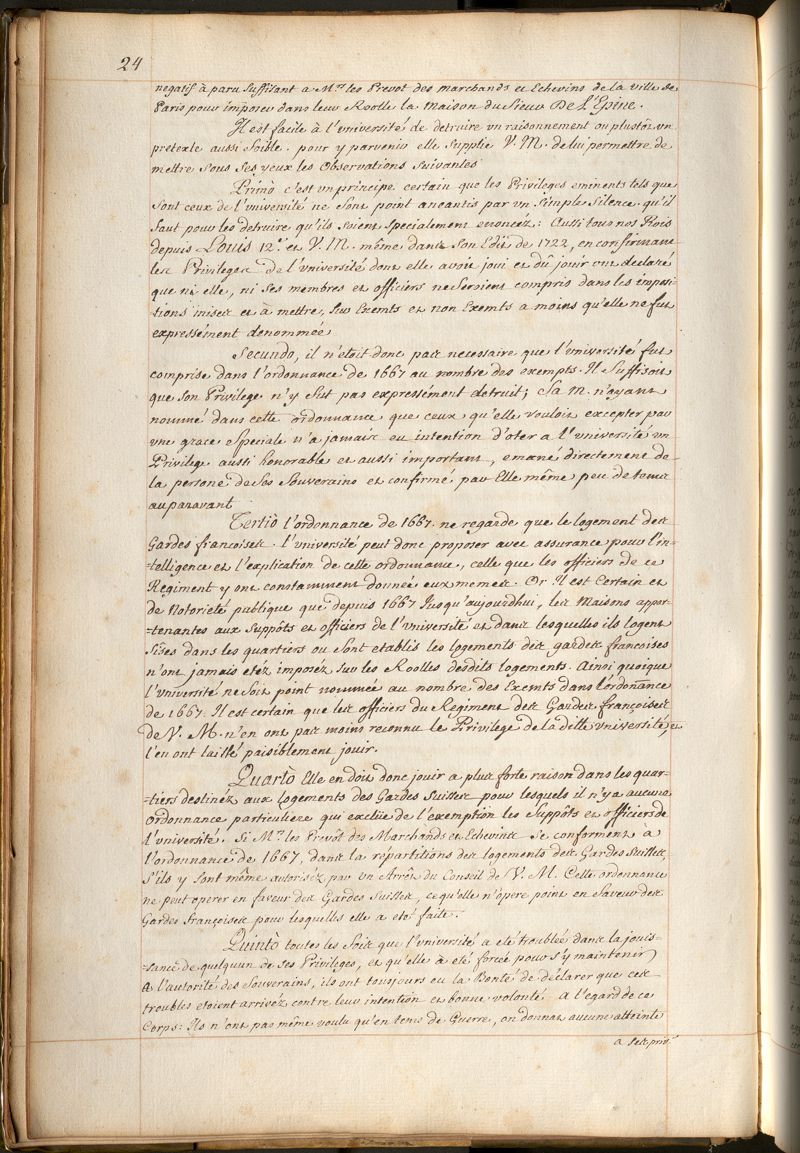 24
negatif à paru Suffisant a Mrs les Prevot des marchands et Echevins de la ville de
Paris pour imposer dans leur Roolle la maison du Sieur De L'Epine.
Il est facile à l'université de detruire un raisonnement ou plustôt un
pretexte aussi foible. pour y parvenir elle Supplie V. M. de lui permettre de
mettre Sous Ses yeux les Observations Suivantes
Primò c'est un principe certain que les Privileges eminents tels que
Sont ceux de l'université ne Sont point aneantis par un Simple Silence. qu'il
faut pour les detruire qu'ils soient Specialement enoncéz: Aussi tous nos Rois
depuis Louis 12.e et V. M. même dans Son Edit de 1722, en confirmant
les Privileges de l'université dont elle avoit joui et dû jouir ont declaré
que ni elle, ni Ses membres et officiers ne Seroient compris dans les imposi-
-tions mises et à mettre, Sur Exemts et non Exemts a moins qu'elle ne fut
expressément denommée
Secundo, il n'etoit donc pas necessaire que l'université fut
comprise dans l'ordonnance de 1667 au nombre des exempts. Il Suffisoit
que son Privilege n'y fut pas expressément detruit; Sa M. n'ayant
nommé dans cette ordonnance que ceux qu'elle vouloit excepter par
une grace Speciale n'a jamais eu intention d'oter a l'université un
Privilege aussi honorable et aussi important, emané directement de
la persone de Ses Souverains et confirmé par Elle même peu de tems
auparavant
Tertiò l'ordonnance de 1667. ne regarde que le logement des
Gardes francoises. l'université peut donc proposer avec assurance pour l'in-
-telligence et l'explication de cette ordonnance, celle que les officiers de ce
Regiment y ont constamment donnée eux memes. Or Il est Certain et
de Notorieté publique que depuis 1667 Jusqu'aujourdhui, les Maisons appar-
-tenantes aux Suppôts et officiers de l'université et dans lesquelles ils logent
Sises dans les quartiers ou Sont etablis les logements des gardes francoises
n'ont jamais etéz imposéz Sur les Roolles desdits logements. Ainsi quoique
l'université ne Soit point nommée au nombre des Exemts dans l'ordonance
de 1667. Il est certain que les officiers du Regiment des Gardes françoises
de V. M. n'en ont pas moins reconnu le Privilege de la ditte université, et
l'en ont laissé paisiblement jouir.
Quartò Elle en doit donc jouir a plus forte raison dans les quar-
-tiers destinéz aux logements des Gardes Suisses pour lesquels il n'y a aucune
ordonnance particuliere qui exclüe de l'exemption les Suppôts et officiers de
l'université. Si Mrs les Prevôt des Marchands et Echevins Se conforment à
l'ordonnance de 1667, dans la répartitions des logements des Gardes Suisses,
S'ils y Sont même autorisez par un Arrêt du Conseil de V. M. Cette ordonnance
ne peut operer en faveur des Gardes Suisses, ce qu'elle n'opere point en Faveur des
Gardes Françoises pour lesquelles elle a eté faite.
Quintò toutes les fois que l'université a eté troublée dans la jouis-
-sance de quelquun de Ses Privileges, et qu'elle à eté forcée pour s'y maintenir
a l'autorité des Souverains, ils ont tousjours eu la Bonté de déclarer que ces
troubles etoient arrivéz contre leur intention et bonne volonté a l'egard de ce
Corps: Ils n'ont pas même voulu qu'en tems de Guerre, on donnat aucune atteinte
a ses priv.